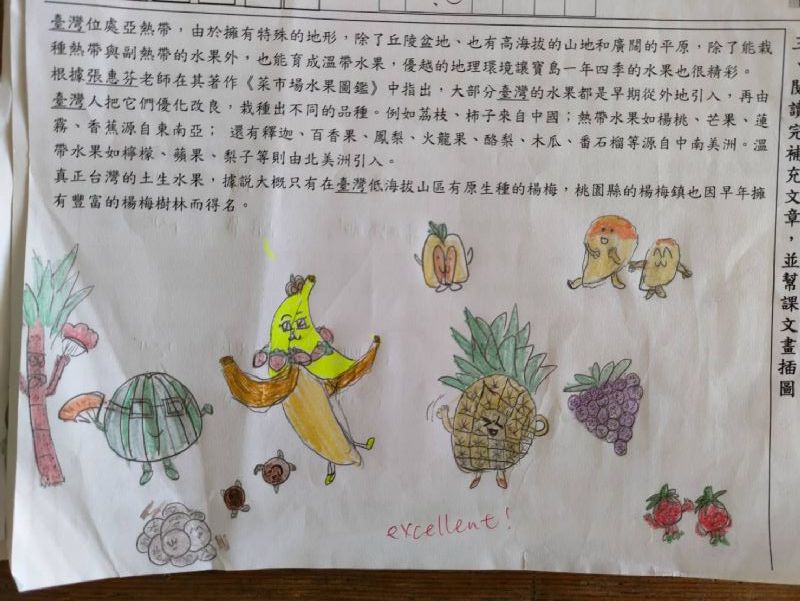 臺灣位處亞熱帶，由於擁有特殊的地形，除了丘陵盆地、也有高海拔的山地和廣闊的平原，除了能栽
種熱帶與副熱帶的水果外，也能育成溫帶水果，優越的地理環境讓寶島一年四季的水果也很精彩。
根據張惠芬老師在其著作《菜市場水果圖鑑》中指出，大部分臺灣的水果都是早期從外地引入，再由
臺灣人把它們優化改良，栽種出不同的品種。例如荔枝、柿子來自中國；熱帶水果如楊桃、芒果、蓮
霧、香蕉源自東南亞； 還有釋迦、百香果、鳳梨、火龍果、酪梨、木瓜、番石榴等源自中南美洲。溫
帶水果如檸檬、蘋果、梨子等則由北美洲引入。
真正台灣的土生水果，據說大概只有在臺灣低海拔山區有原生種的楊梅，桃園縣的楊梅鎮也因早年擁
有豐富的楊梅樹林而得名。
三、閱讀完補充文章，並幫課文畫插圖
excellent!